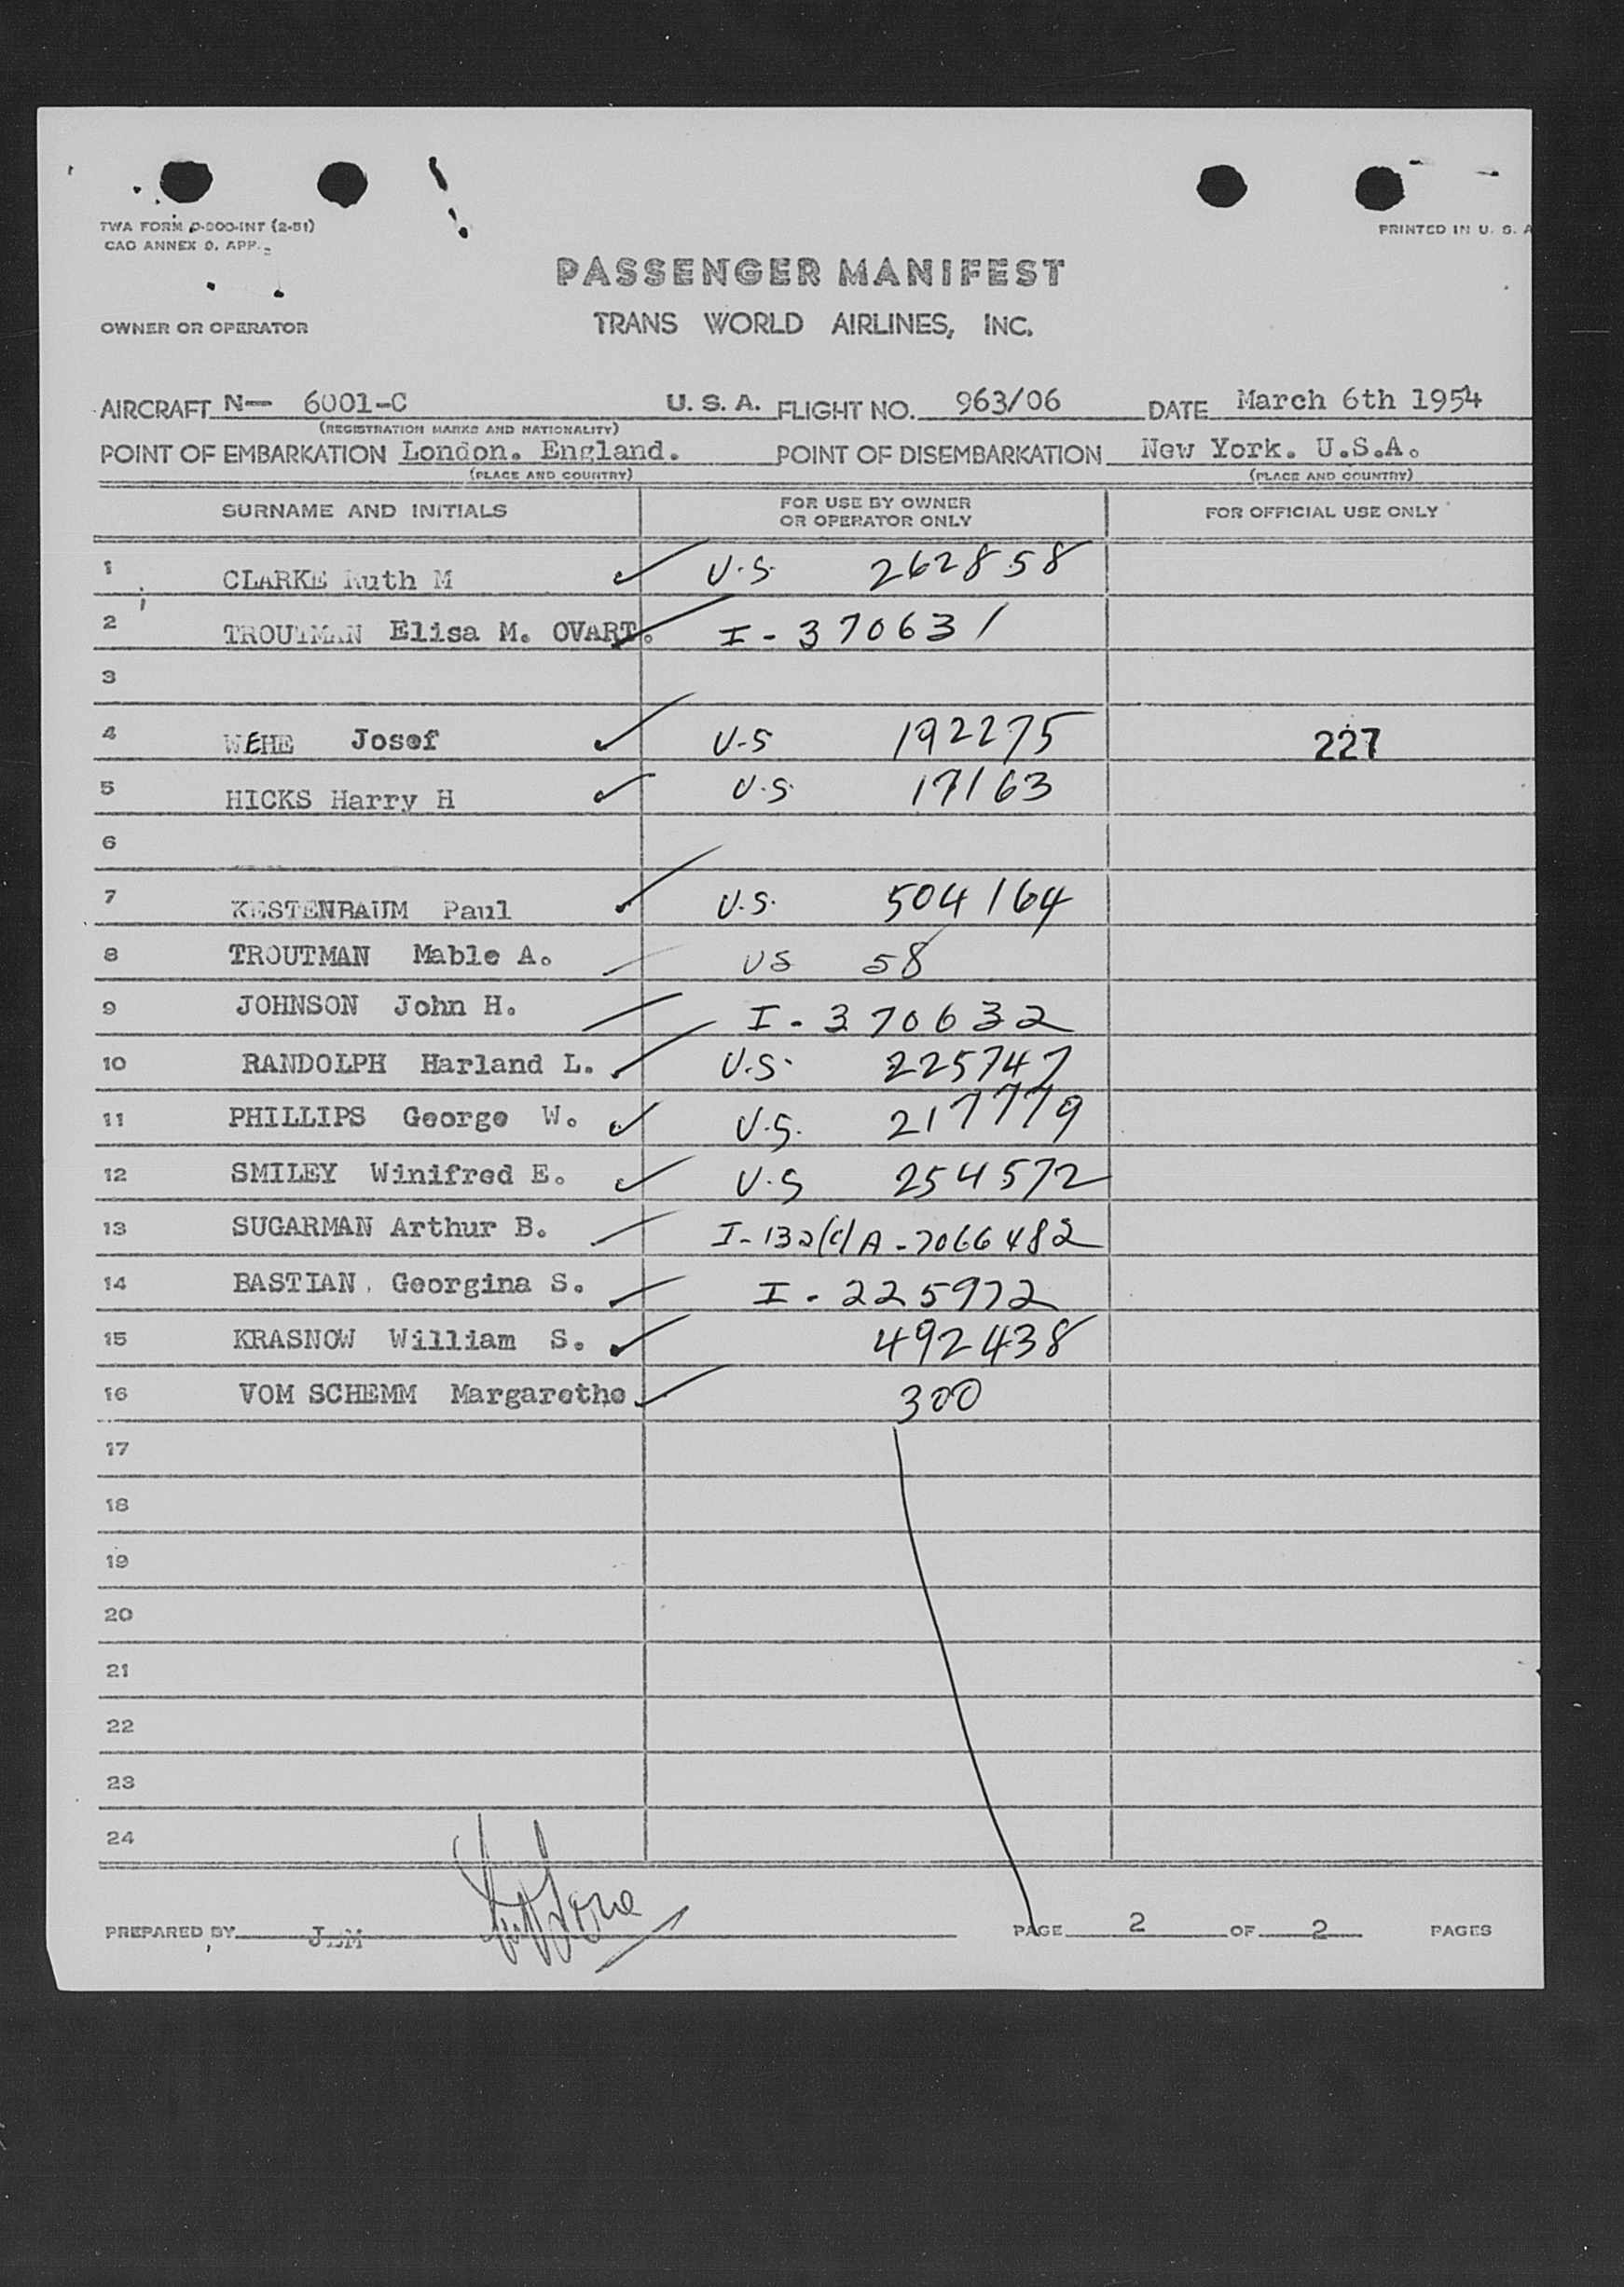 TWA FORM O-900-INT (2-51)
CAO ANNEX 9, APP.
PRINTED IN U. S. A
PASSENGER MANIFEST
OWNER OR OPERATOR TRANS WORLD AIRLINES, INC.
AIRCRAFT N— 6001-C U. S. A. FLIGHT NO. 963/06 DATE March 6th 1954
(REGISTRATION MARKS AND NATIONALITY)
POINT OF EMBARKATION London. England. POINT OF DISEMBARKATION New York. U.S.A.
(PLACE AND COUNTRY) (PLACE AND COUNTRY)
SURNAME AND INITIALS FOR USE BY OWNER OR OPERATOR ONLY FOR OFFICIAL USE ONLY
1 CLARKE Ruth M U.S. 262858
2 TROUTMAN Elisa M. OVART. I-370631
3
4 WEHE Josef U-S 192275 227
5 HICKS Harry H U.S. 17163
6
7 KESTENBAUM Paul U.S. 504164
8 TROUTMAN Mable A. US 58
9 JOHNSON John H. I-370632
10 RANDOLPH Harland L. U.S. 225747
11 PHILLIPS George W. U.S. 217779
12 SMILEY Winifred E. U.S 254572
13 SUGARMAN Arthur B. I-132(c) A-7066482
14 BASTIAN, Georgina S. I-225972
15 KRASNOW William S. 492438
16 VOM SCHEMM Margarethe 300
17
18
19
20
21
22
23
24
PREPARED BY JEM PAGE 2 OF 2 PAGES